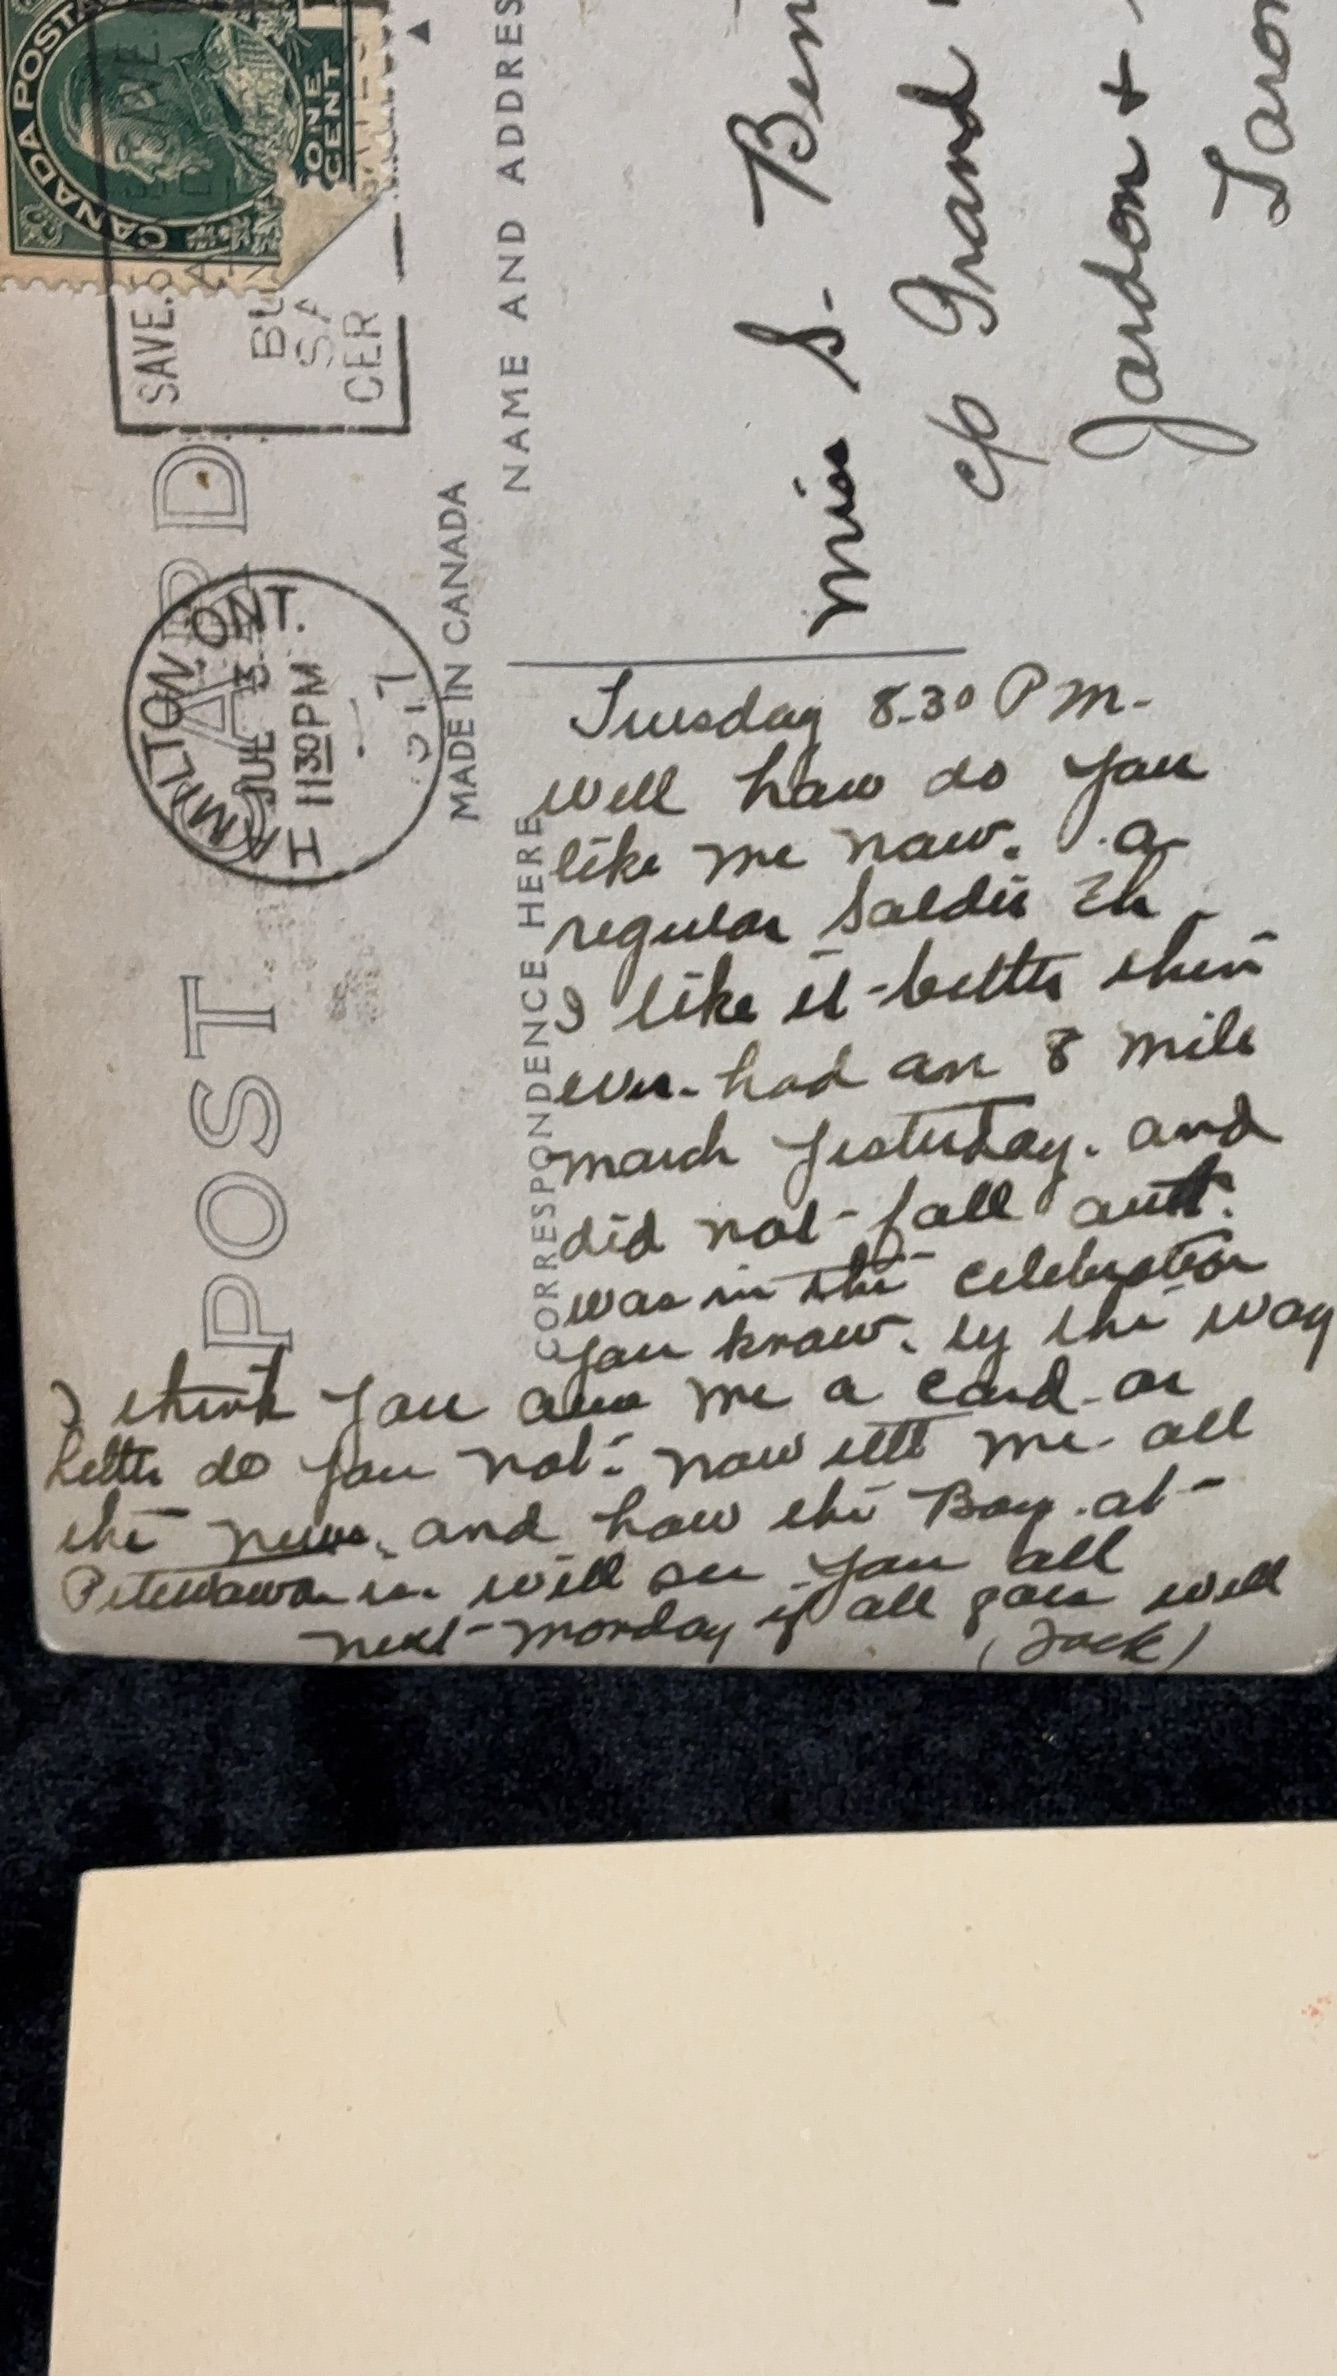 CANADA POSTA
ONE
CENT
SAVE.
BU
SA
CER
POST CARD
HAMILTON, ONT.
JUL 3
11 30 PM
I
MADE IN CANADA
NAME AND ADDRES
CORRESPONDENCE HERE
Miss S. Ben
c/o Grand
Jardon +
Toron
Tuesday 8-30 P M-
well how do you
like me now. a
regular Soldier Eh
I like it better then
ever. had an 8 mile
march yesterday. and
did not fall out.
was in the celebration
you know. by the way
I think you owe me a card or
letter do you not. now tell me all
the news. and how the Boy at
Petewawa is. will see you all
next monday if all goes well
(Jack)